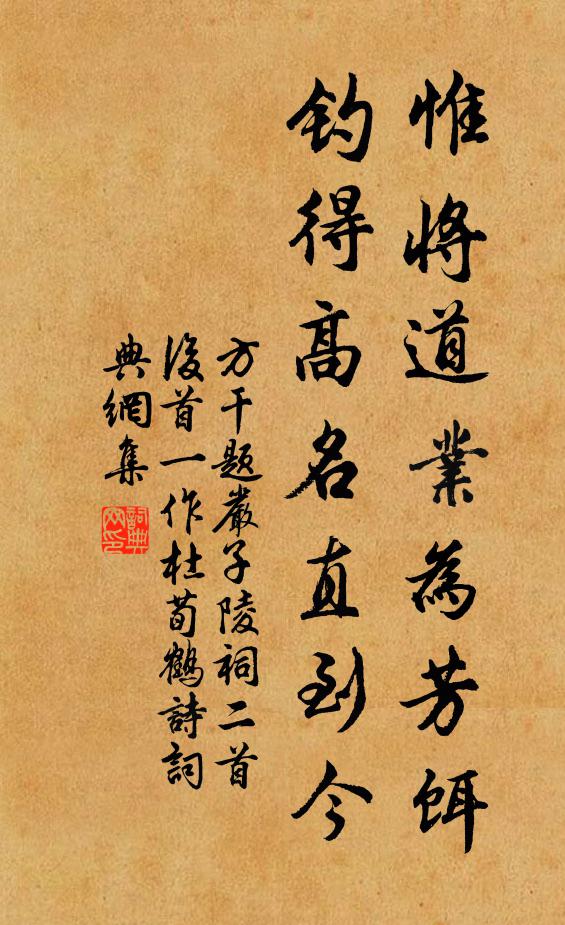 惟將道業為芳餌
釣得高名直到今
方干題嚴子陵祠二首
後首一作杜荀鶴詩詞
典網集
詞典網印